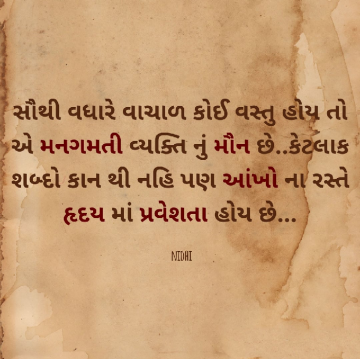 સૌથી વધારે વાચાળ કોઈ વસ્તુ હોય તો
એ મનગમતી વ્યક્તિ નું મૌન છે..કેટલાક
શબ્દો કાન થી નહિ પણ આંખો ના રસ્તે
હૃદય માં પ્રવેશતા હોય છે...
NIDHI